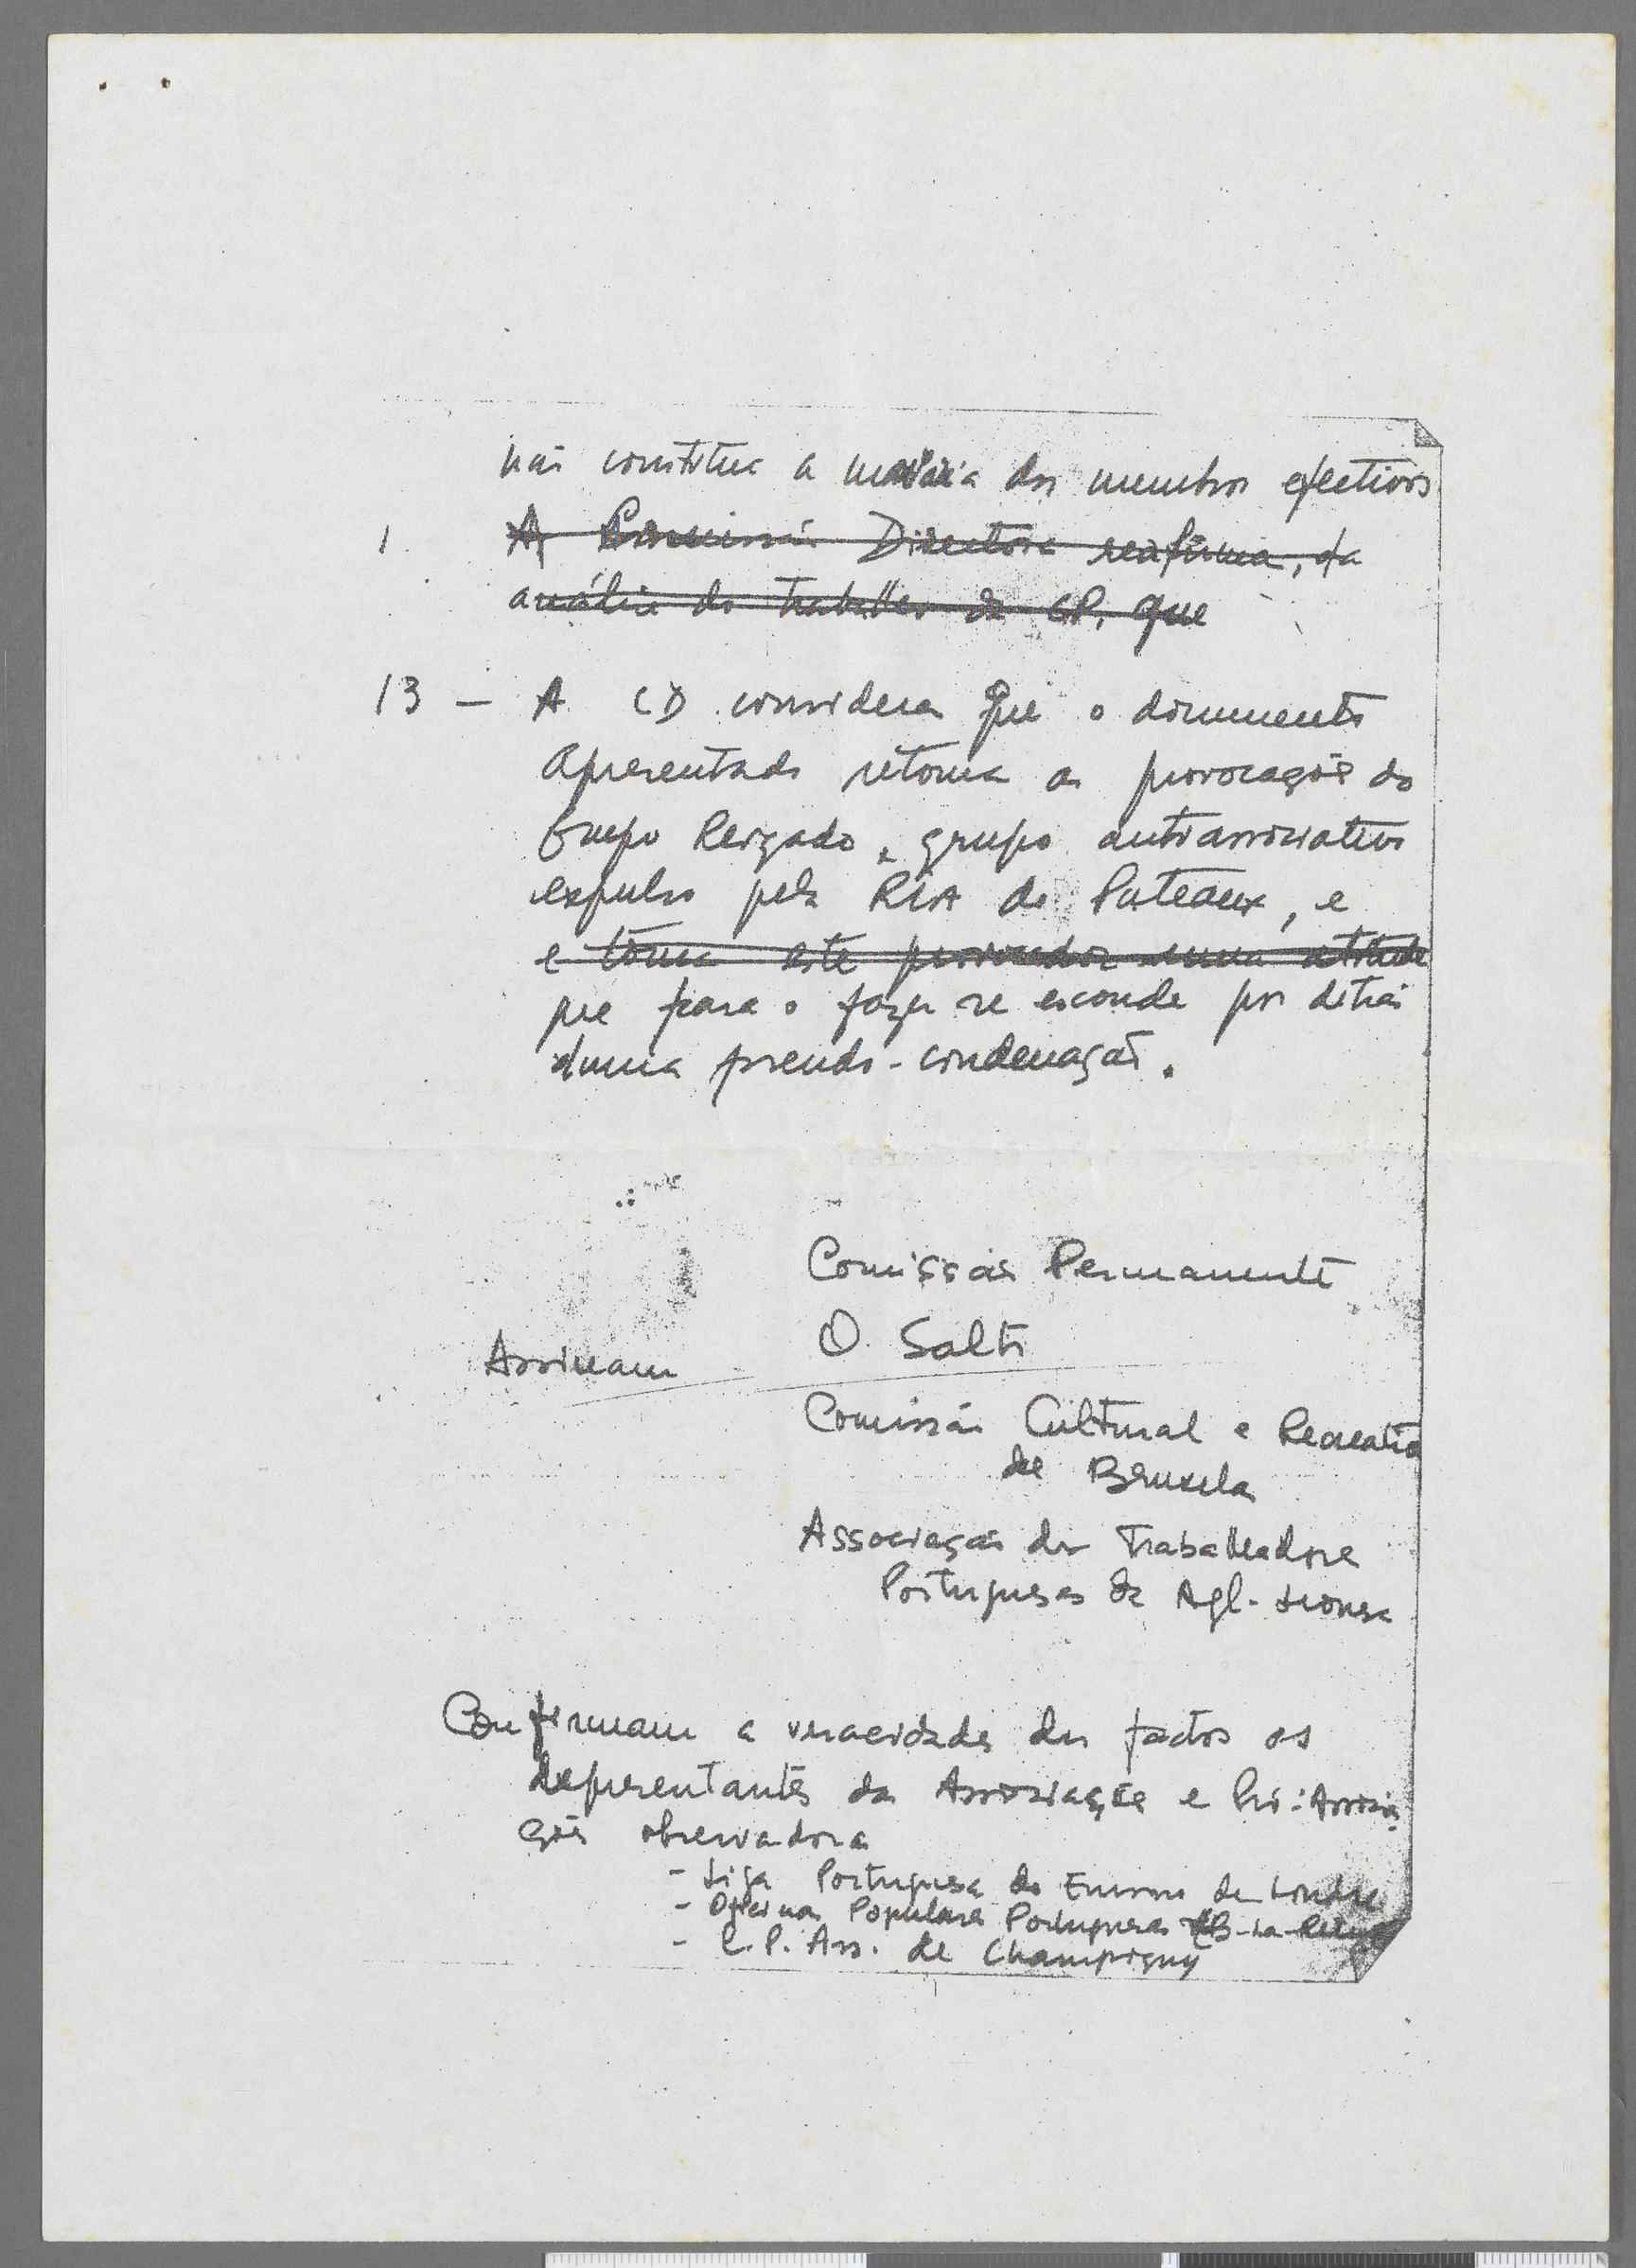 não constitue a maioria dos membros efectivos
1. A Comissão Directora reafirma, da
análise do trabalho da CP, que
13 — A CD considera que o documento
apresentado retoma as provocações do
Grupo Reizado, grupo antiassociativo
expulso pela RIA de Puteaux, e
e toma este provocador numa atitude
que para o fazer se esconde por detrás
duma pseudo-condenação.
Comissão Permanente
O Salto
Assinam
Comissão Cultural e Recreativa
de Bruxelas
Associação dos Trabalhadores
Portugueses da Agl. Lionesa
Confirmam a veracidade dos factos os
representantes das Associações e Pró-Associa
ções observadoras
- Liga Portuguesa do Ensino de Londres
- Oficinas Populares Portuguesas B-La-Reine
- C.P. Ass. de Champigny